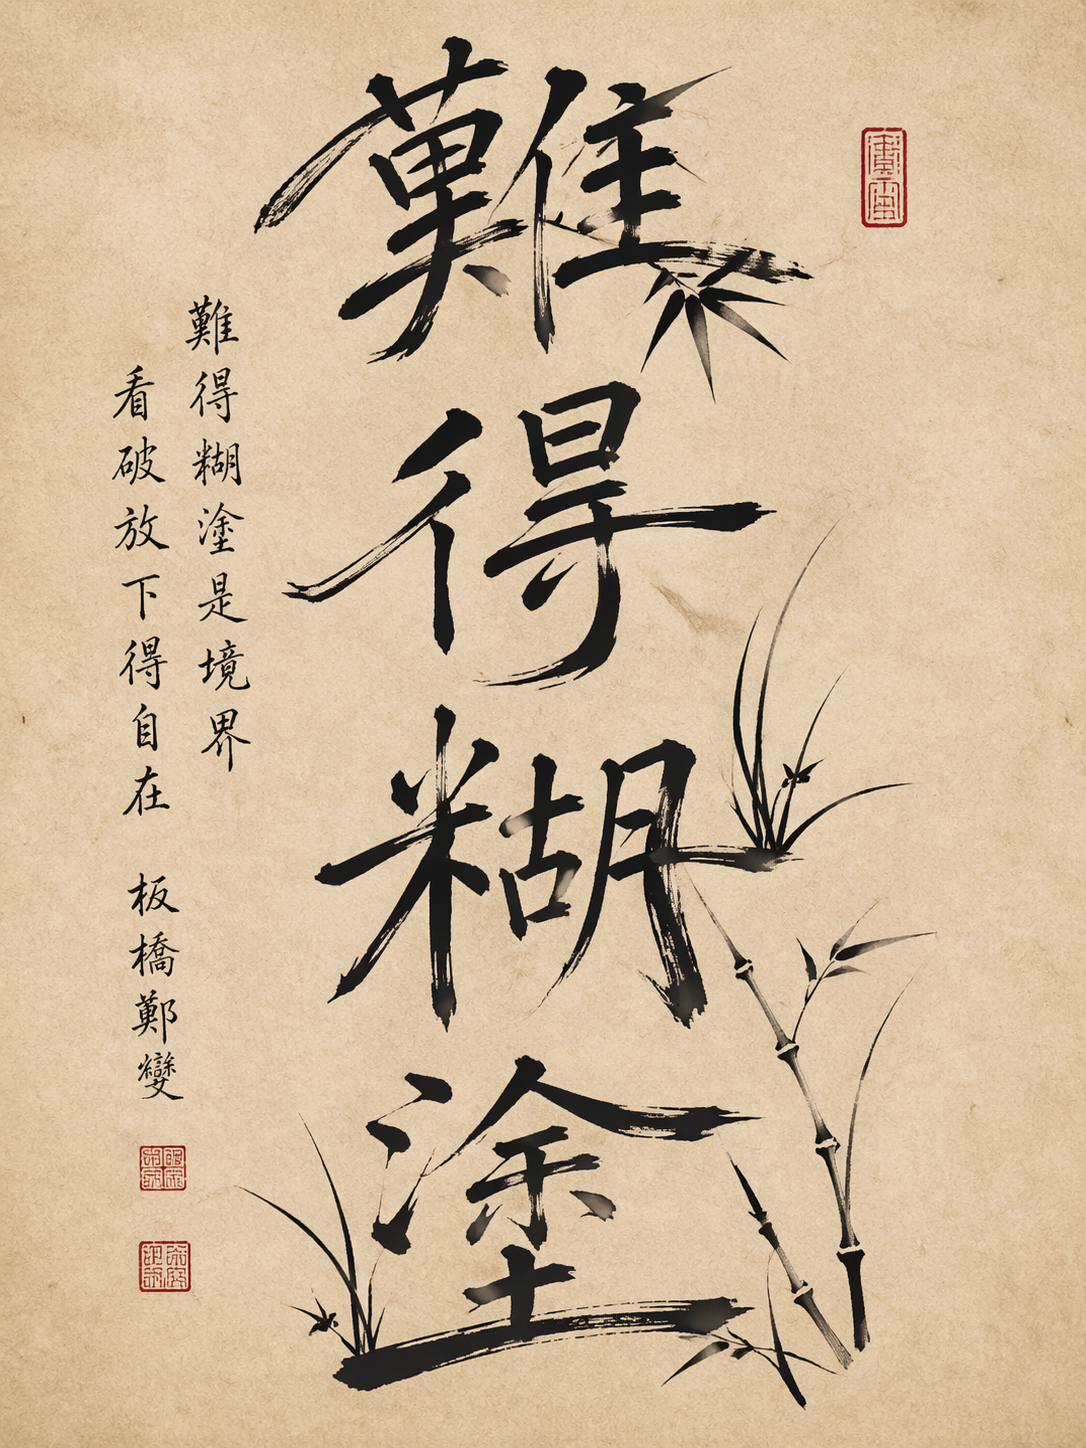 難得糊塗
難得糊塗是境界
看破放下得自在
板橋鄭燮